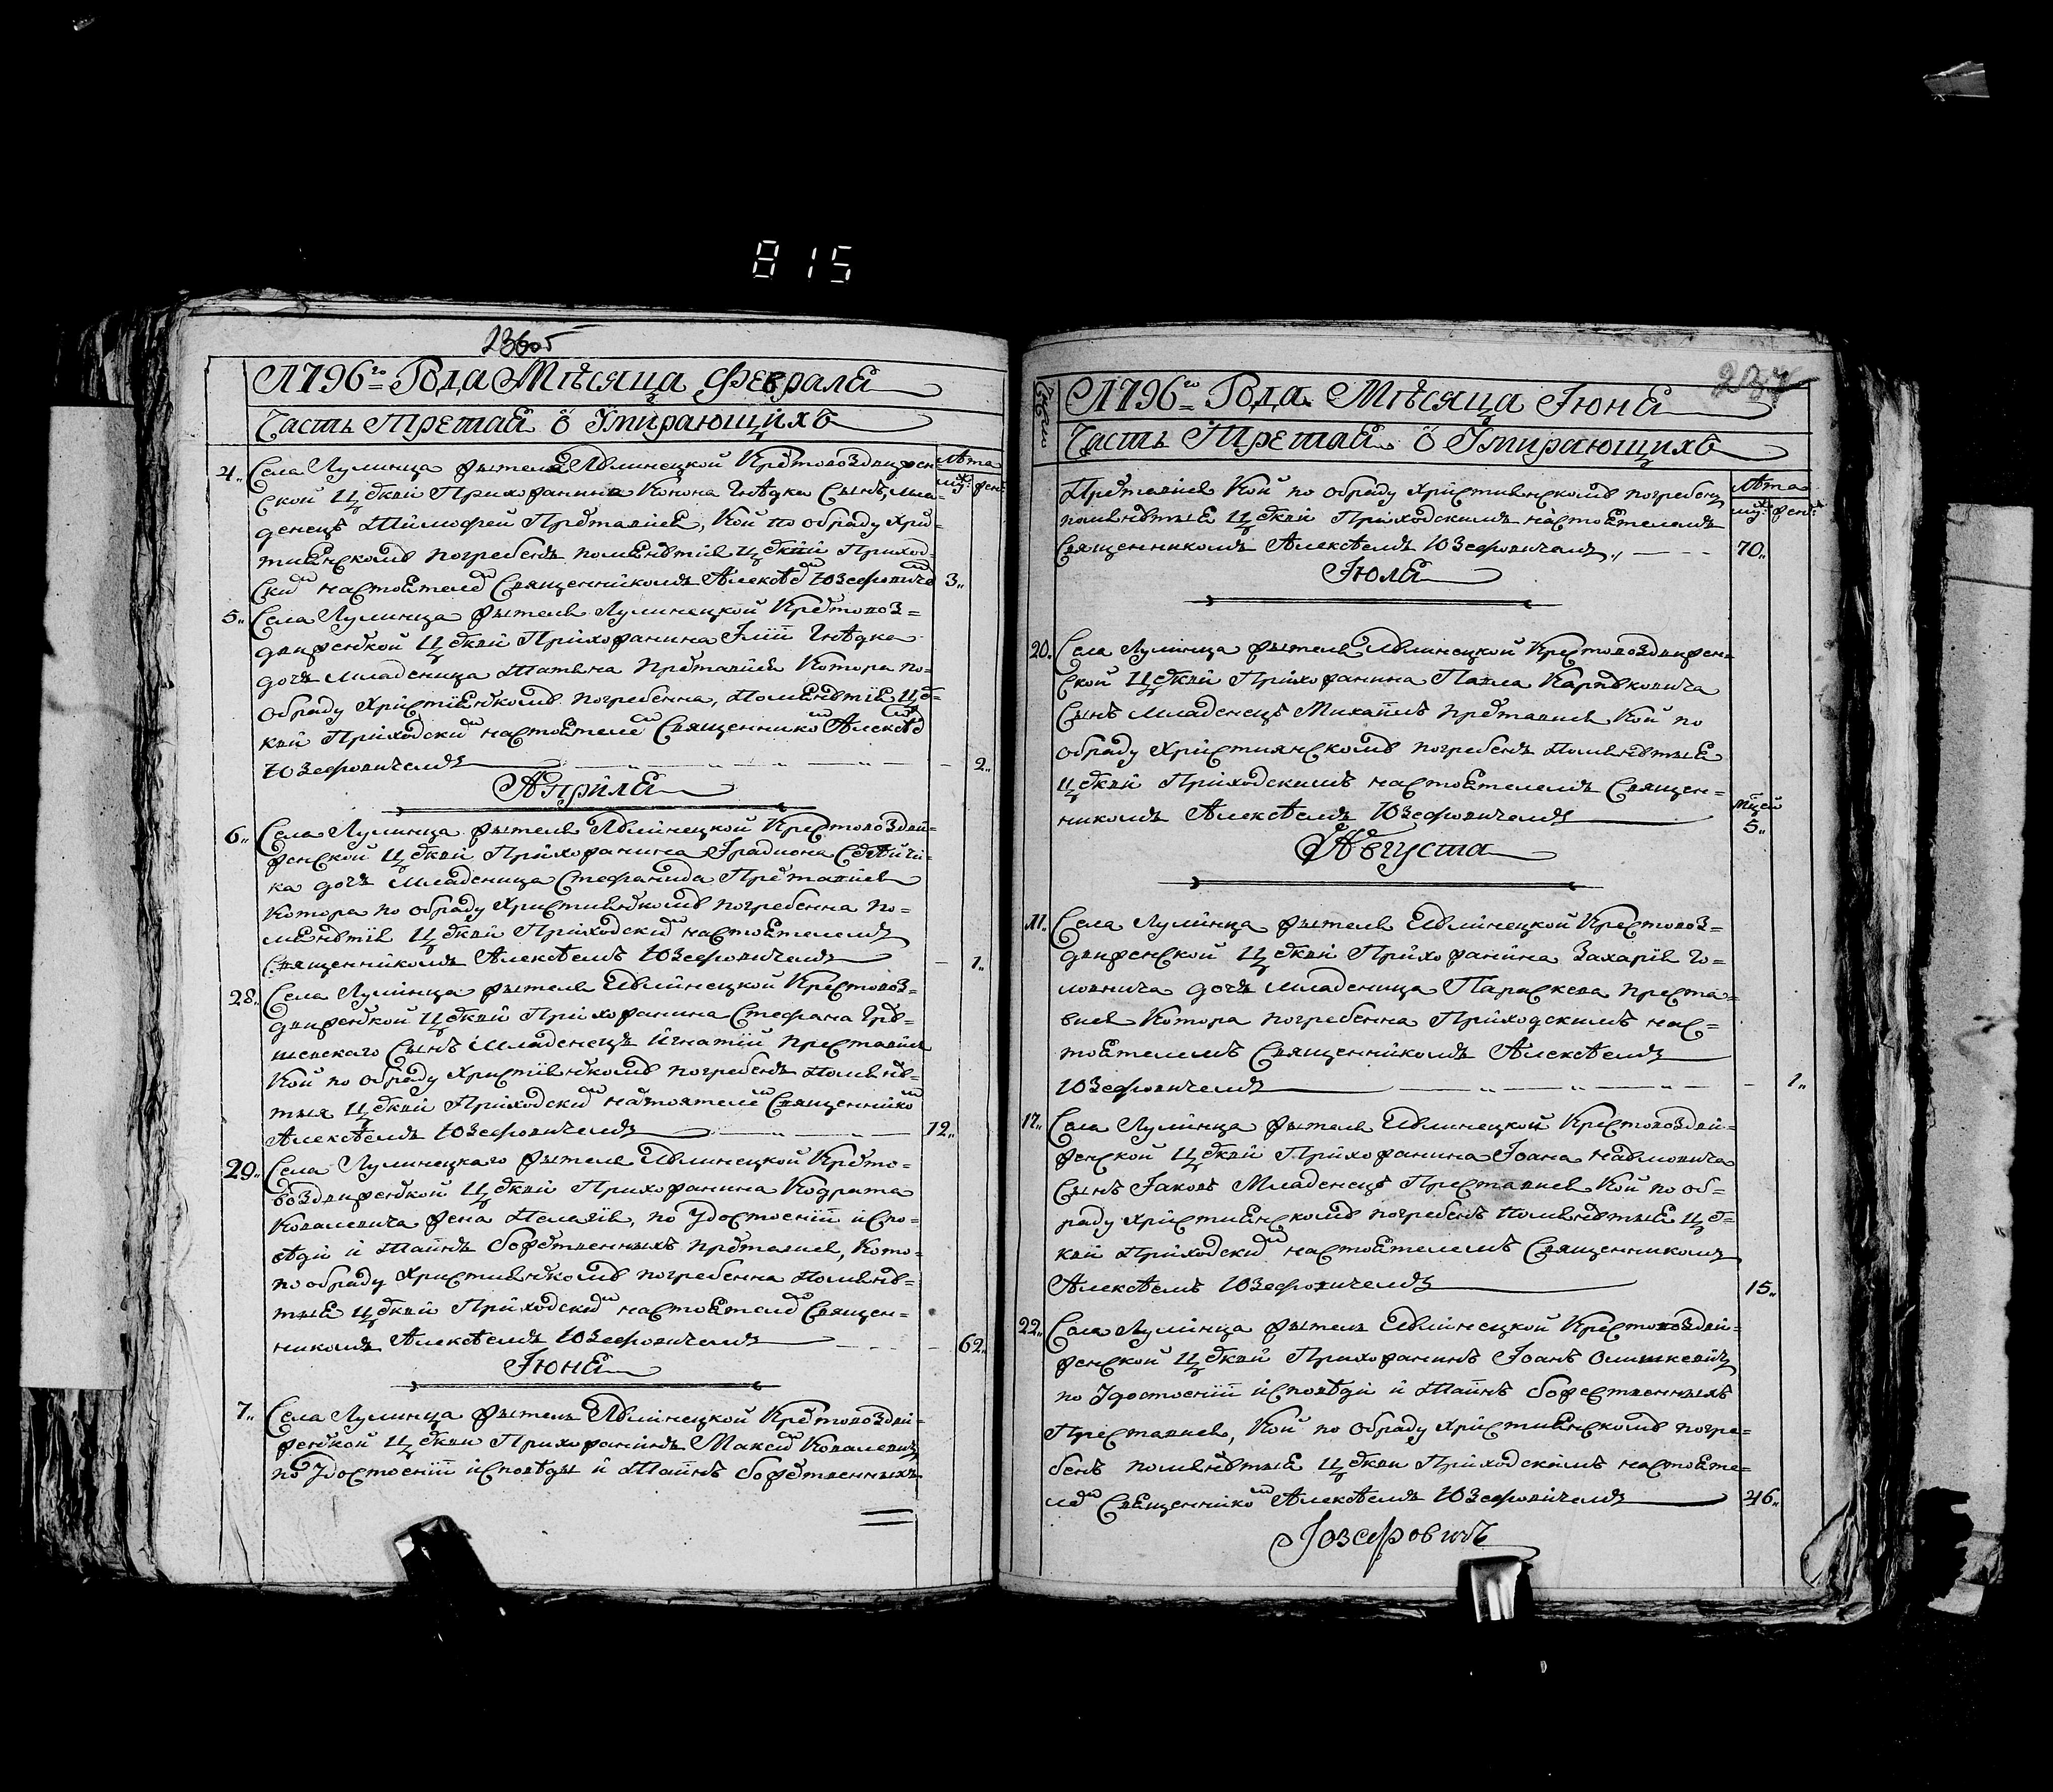 815
236об
1796го Года Мѣсяца Февраля
Часть Третая о Умирающихъ
Лѣта
муж. жен.
4. Села Лулинца жителя Лулинецкой Крстовоздвижен=
ской Цркви Прихожанина Конона Гнѣдка Сынъ мла=
денецъ Тимофей Прставися, Кой по обряду хри=
стиянскому погребенъ помянутія Цркви Приход=
ски настоятеле Священникомъ Алексѣе Юзефовиче 3.
5. Села Лулинца жителя Лулинецкой Крстовоз=
движенской Цркви Прихожанина Іліи Гнѣдка
дочь младеница Татяна прставися Котора по=
обряду христіянскому погребенна, помянутія Цр=
кви Приходски настоятеле Священнико Алексѣе
Юзефовичемъ 2.
Априля
6. Села Лулинца жителя Лулинецкой Крестовоздви=
женской Цркви Прихожанина Ірадиона
ка дочь младеница Стефанида Прставися
Котора по обряду християнскому погребенна по=
мянутія Цркви Приходски настоятелемъ
Священникомъ Алексѣемъ Юзефовичемъ 1.
28. Села Лулинца жителя Лулинецкой Крестовоз=
движенской Цркви Прихожанина Стефана Гру=
шевскаго Сынъ младенецъ Игнатій преставися
Кой по обряду христіянскому погребенъ помяну=
тыя Цркви Приходски настоятеле Священнико
Алексѣемъ Юзефовичемъ 12.
29. Села Лулинецкаго жителя Лулинецкой Крсто=
воздвиженской Цркви Прихожанина Кодрата
Ковалевича жена Пелагія, по Удостоеніи испо=
вѣди и Таинъ божественныхъ прставися, Кото=
по обряду християнскому погребенна помяну=
тыя Цркви Приходски настоятеле Священ=
никомъ Алексѣемъ Юзефовичемъ 62.
Іюня
7. Села Лулинца жителя Лулинецкой Крстовоздви=
женской Цркви Прихожанинъ Макси Ковалевичъ
по Удостоеніи исповѣды и Таинъ божственныхъ
237
Число
1796го Года Мѣсяца Іюня
Часть Третая о Умирающихъ
Лѣта
муж. жен.
Прставися Кой по обряду християнскому погребенъ
помянутыя Цркви Приходскимъ настоятелемъ
Священникомъ Алексѣемъ Юзефовичемъ 70.
Іюля
20. Села Лулинца жителя Лулинецкой Крестовоздвижен=
ской Цркви Прихожанина Павла Карпковича
Сынъ младенецъ Михаилъ прставися Кой по
обряду християнскому погребенъ помянутыя
Цркви Приходскимъ настоятелемъ Священ=
никомъ Алексѣемъ Юзефовичемъ мцей 5.
Августа
11. Села Лулинца жителя Лулинецкой Крестовоз=
движенской Цркви Прихожанина Захарія Го=
ловнича дочь младеница Парискева преста=
вися Котора погребенна Приходскимъ нас=
тоятелемъ Священникомъ Алексѣемъ
Юзефовичемъ 1.
17. Села Лулинца жителя Лулинецкой Крестовоздви=
женской Цркви Прихожанина Іоана Наумовича
Сынъ Іаковъ Младенецъ Преставися Кой по об=
ряду християнскому погребенъ помянутыя Цр=
кви приходски настоятелемъ Священникомъ
Алексѣемъ Юзефовичемъ 15.
22. Села Лулинца жителя Лулинецкой Крестовоздви=
женской Цркви Прихожанинъ Іоанъ Олишкевичъ
по Удостоеніи исповѣди и Таинъ божественныхъ
Преставися, Кой по обряду християнскому погре=
бенъ помянутыя Цркви Приходскимъ настояте=
ле Священнико Алексѣемъ Юзефовичемъ 46.
Іозефовичъ